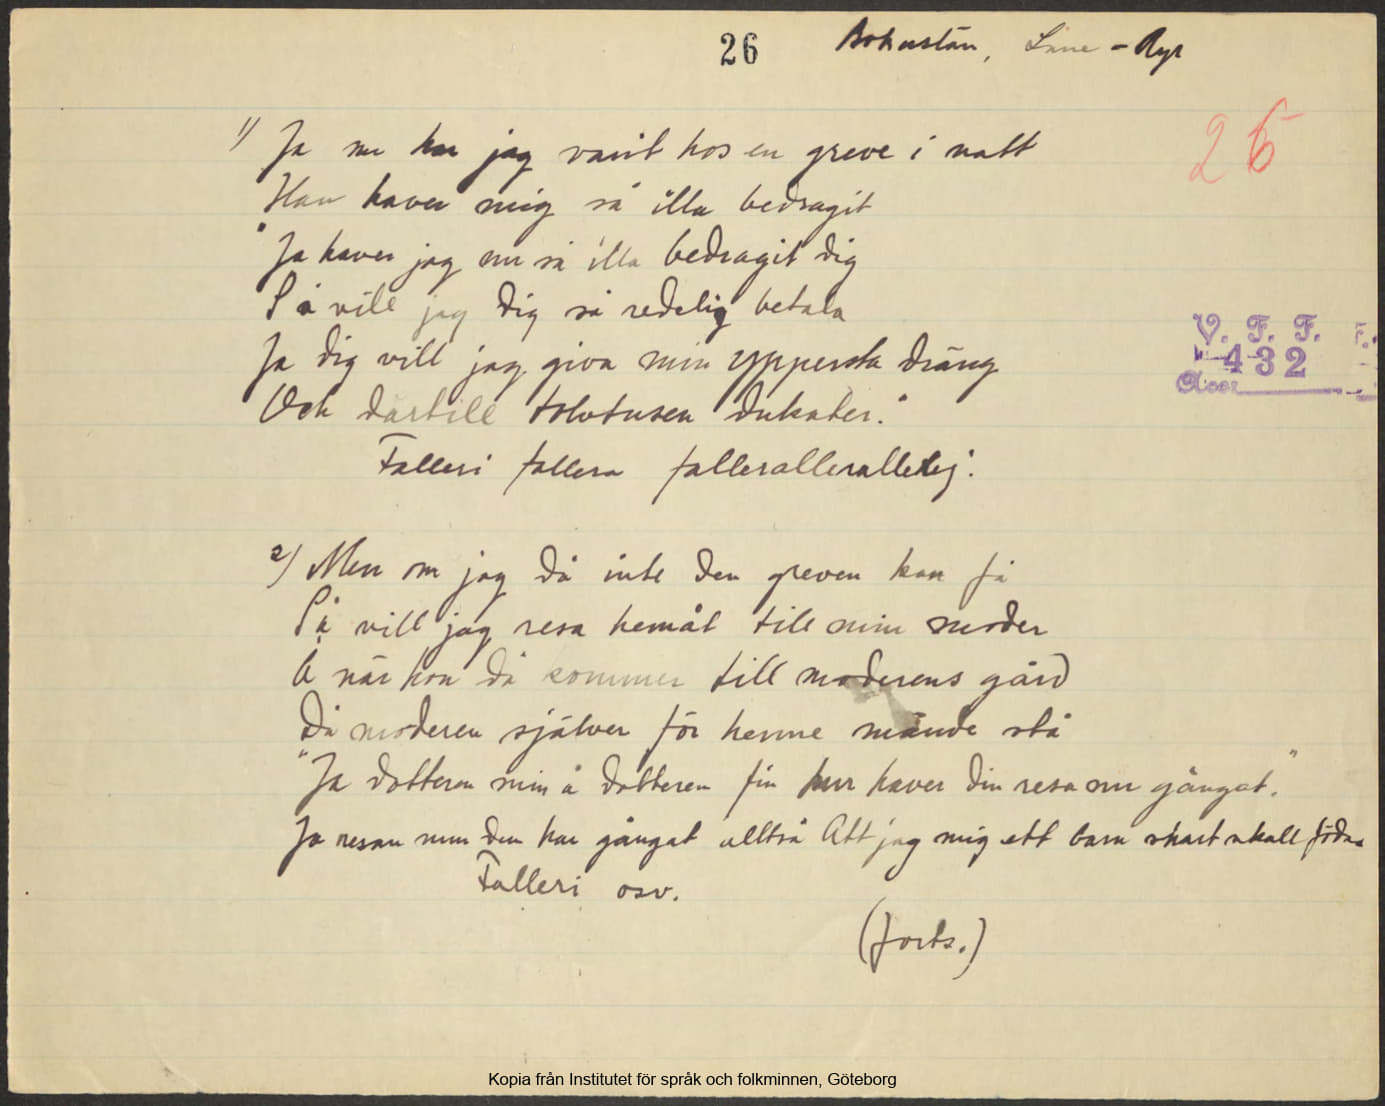 26 Bohuslän, Lane-Ryr
26
1) Ja nu har jag varit hos en greve i natt
Han haver mig så illa bedragit
"Ja haver jag nu så illa bedragit dig
Så vill jag dig så redelig betala
Ja dig vill jag giva min ypperste dräng
Och därtill tolvtusen dukater."
Falleri fallera falleralleralleralej.
V. F. F.
432
Acc:
2) Men om jag då inte den greven kan få
Så vill jag resa hemåt till min moder
Å när hon då kommer till moderens gård
Då moderen själver för henne månde stå
"Ja dotteren min å dotteren fin hur haver din resa nu gångat."
Ja resan min den har gångat alltså Att jag mig ett barn skart skall föda
Falleri osv.
(forts.)
Kopia från Institutet för språk och folkminnen, Göteborg